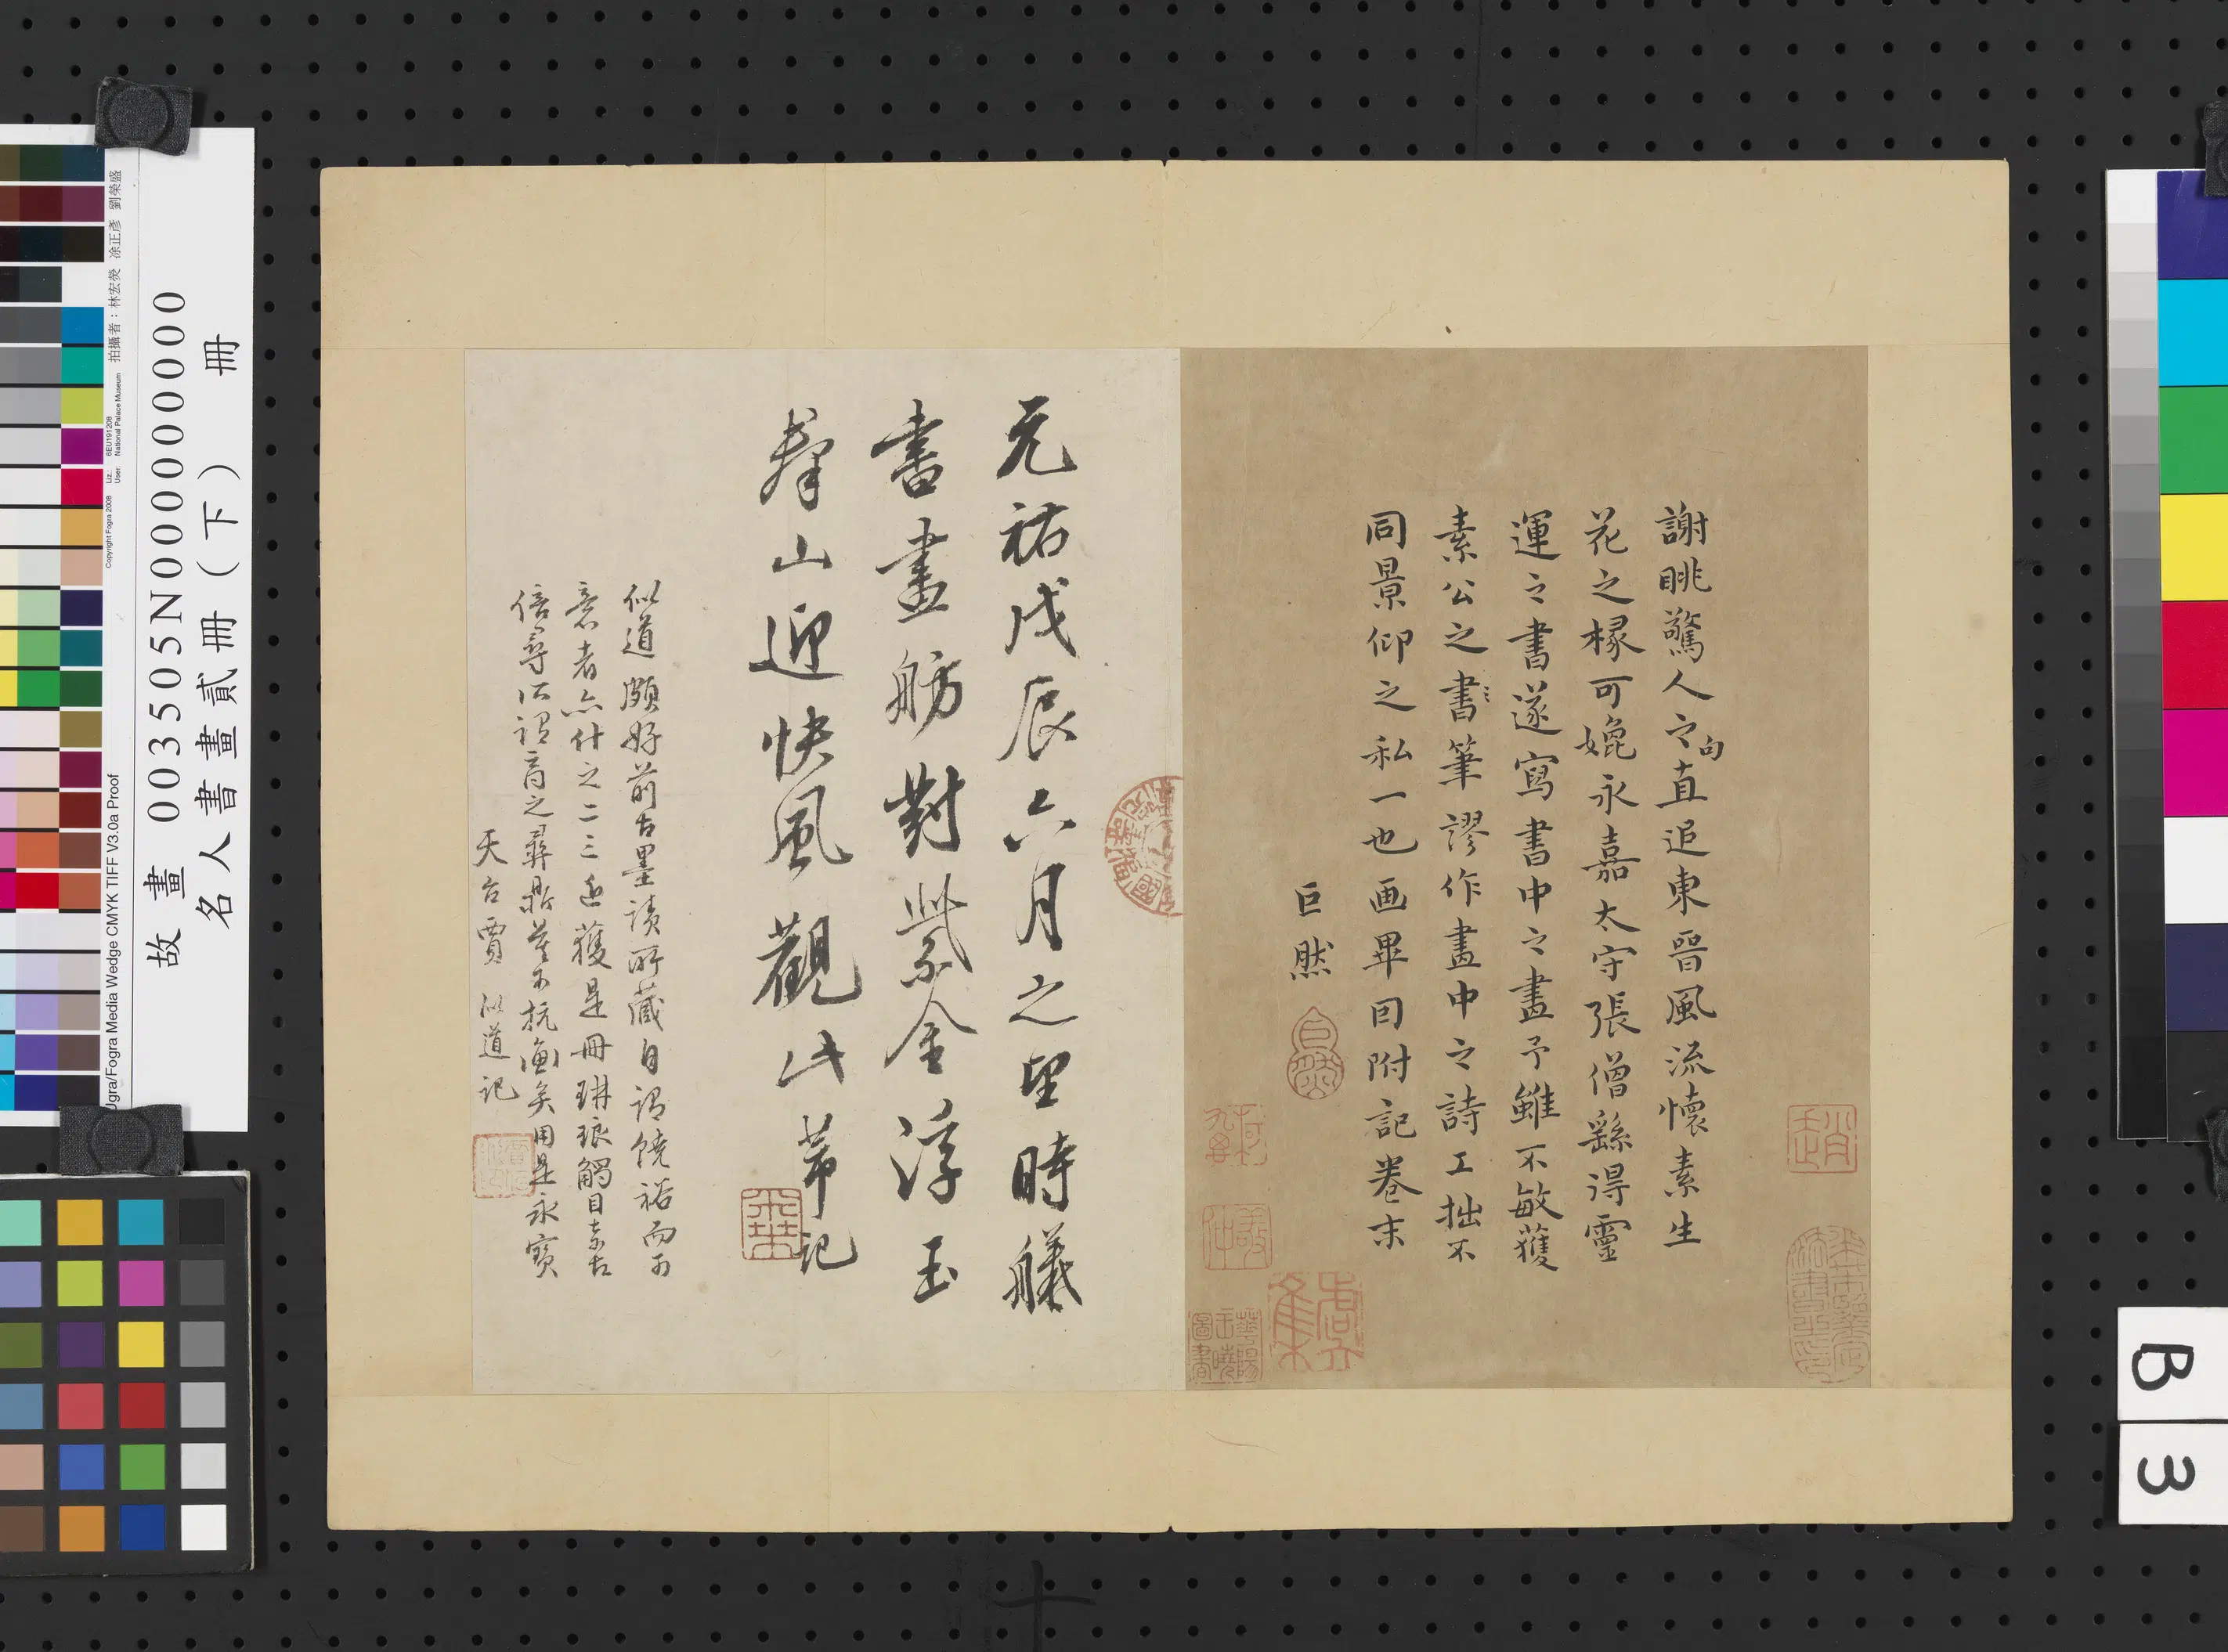 謝眺驚人之句直追東晉風流懷素生
花之椽可媲永嘉太守張僧繇得靈
運之書遂寫書中之畫予雖不敏獲
素公之書筆謬作畫中之詩工拙不
同景仰之私一也画畢因附記卷末
巨然
元祐戊辰六月之望時艤
書畫舫對紫金浮玉
群山迎快風觀此芾記
似道頗好前古墨讀所藏自謂饒裕而可
意者亦什之二三近獲是冊琳琅觸目素古
倍尋所謂商之彞鼎莫可抗衡矣用是永寶
天台賈似道記
故畫 003505N000000000
名人書畫貳冊(下) 冊
拍攝者:林宏熒 涂正彥 劉榮盛
Ugra/Fogra Media Wedge CMYK TIFF V3.0a Proof
Copyright Fogra 2008
Liz.: 6EU191208
User: National Palace Museum
B
3